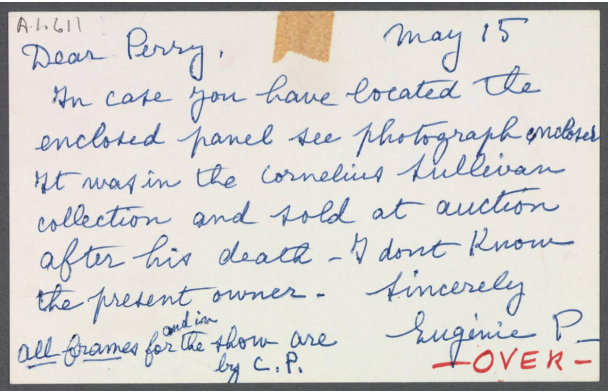 A.L.611
Dear Perry, May 15
In case you have located the
enclosed panel see photograph enclosed
It was in the Cornelius Sullivan
collection and sold at auction
after his death - I dont Know
the present owner - Sincerely
all frames for and in the show are Eugénie P_
by C.P. -OVER-